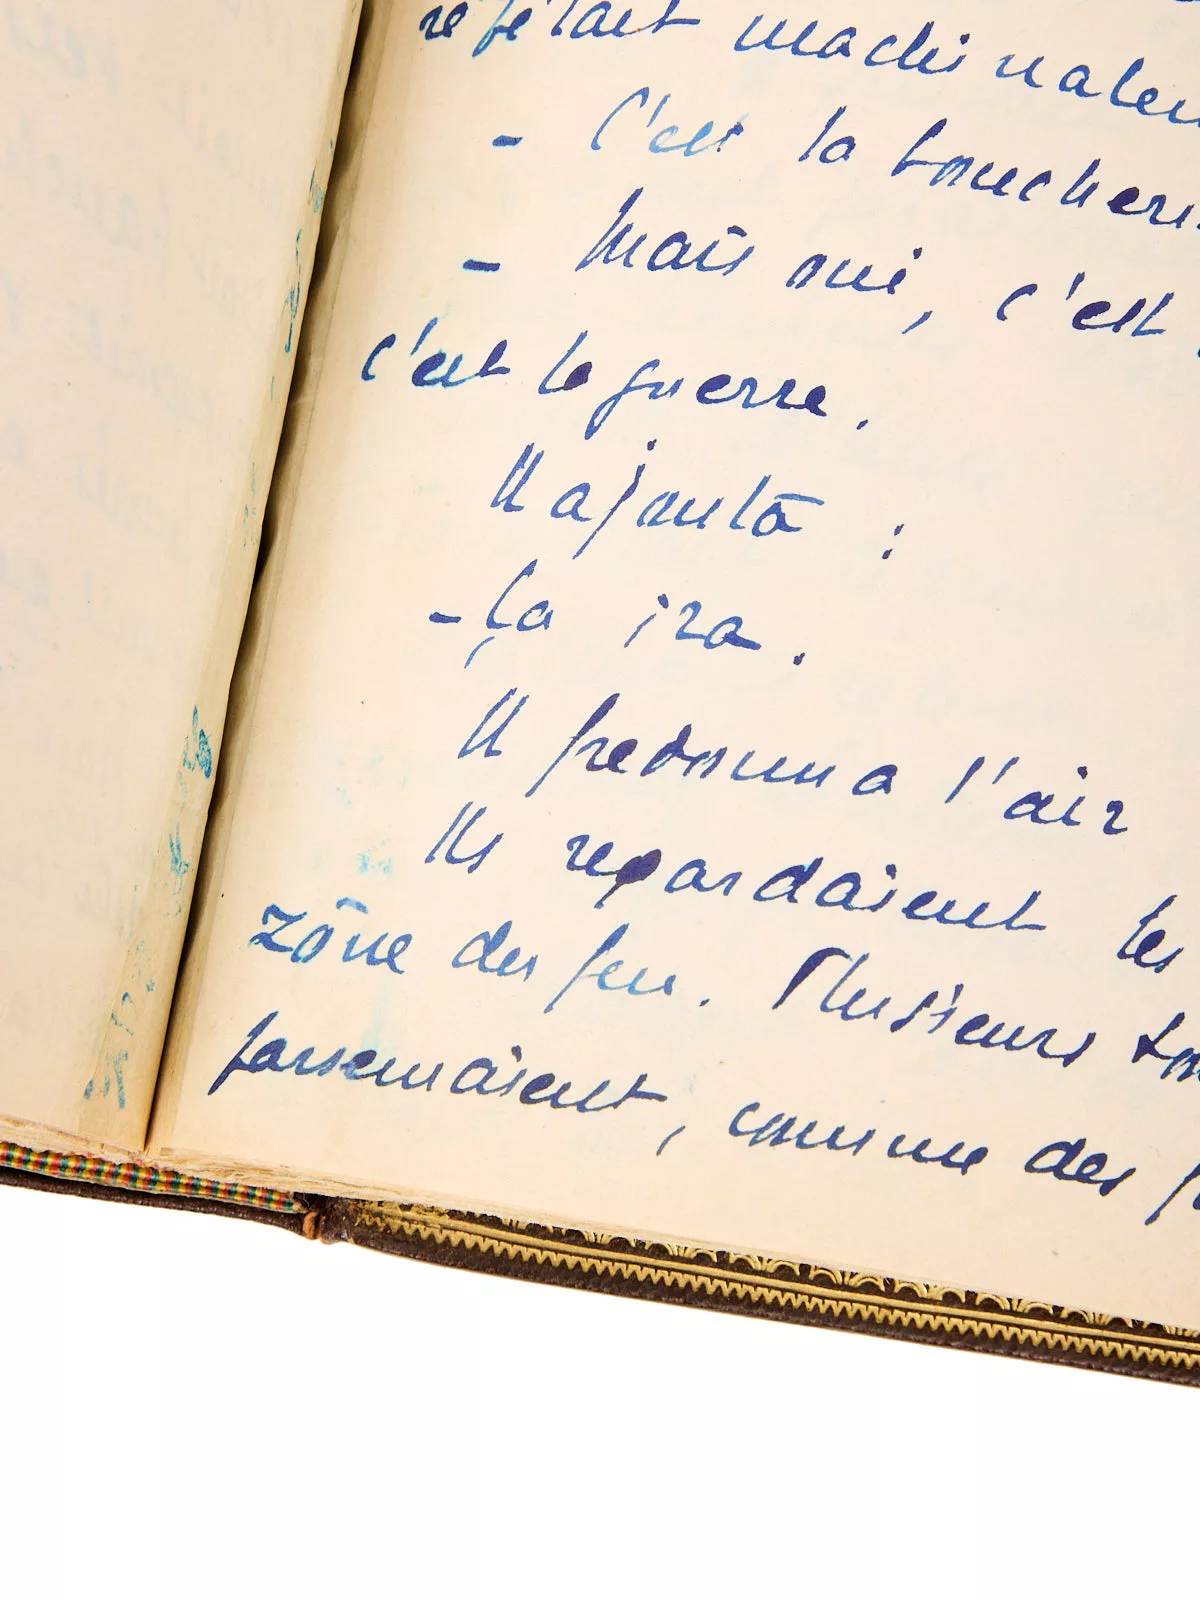 répétait machinalem
- C'est la boucheri
- Mais oui, c'est
c'est la guerre.
Il ajouta :
- Ça ira.
Il fredonna l'air
Ils regardaient les
zône des feu. Plusieurs
parsemaient, comme des